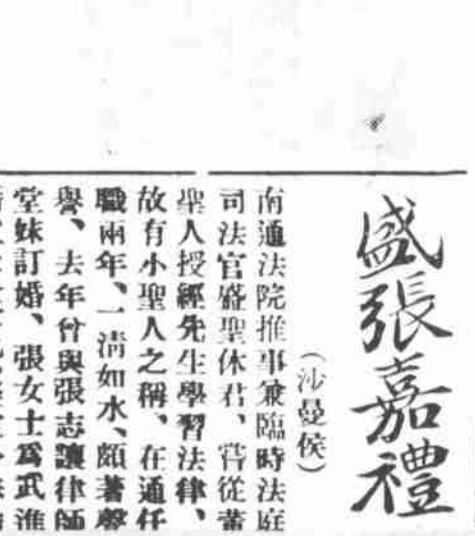 盛張嘉禮
(沙曼侯)
南通法院推事兼臨時法庭
司法官盛聖休君、嘗從董
聖人授經先生學習法律、
故有小聖人之稱、在通任
職兩年、一清如水、頗著聲
譽、去年曾與張志讓律師
堂妹訂婚、張女士爲武進